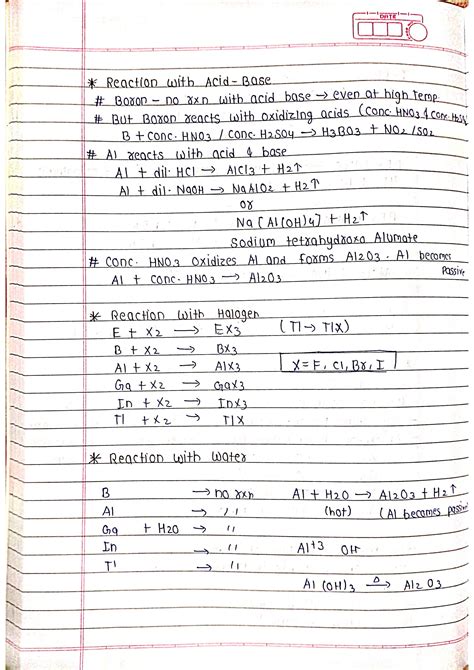 DATE
* Reaction with Acid-Base
# Boron - no rxn with acid base → even at high Temp.
# But Boron reacts with oxidizing acids (conc. HNO3 & conc. H2SO4
B + conc. HNO3 / conc. H2SO4 → H3BO3 + NO2/SO2
# Al reacts with acid & base
Al + dil. HCl → AlCl3 + H2↑
Al + dil. NaOH → NaAlO2 + H2↑
or
Na[Al(OH)4] + H2↑
Sodium tetrahydroxo Alumate
# Conc. HNO3 Oxidizes Al and forms Al2O3. Al becomes
Passive
Al + conc. HNO3 → Al2O3
* Reaction with Halogen
E + X2 → EX3 (Tl → TlX)
B + X2 → BX3
Al + X2 → AlX3 X = F, Cl, Br, I
Ga + X2 → GaX3
In + X2 → InX3
Tl + X2 → TlX
* Reaction with Water
B → no rxn Al + H2O → Al2O3 + H2↑
Al → '' (hot) (Al becomes passive
Ga + H2O → ''
In → '' Al+3 OH
Tl → ''
Al(OH)3 Δ→ Al2O3